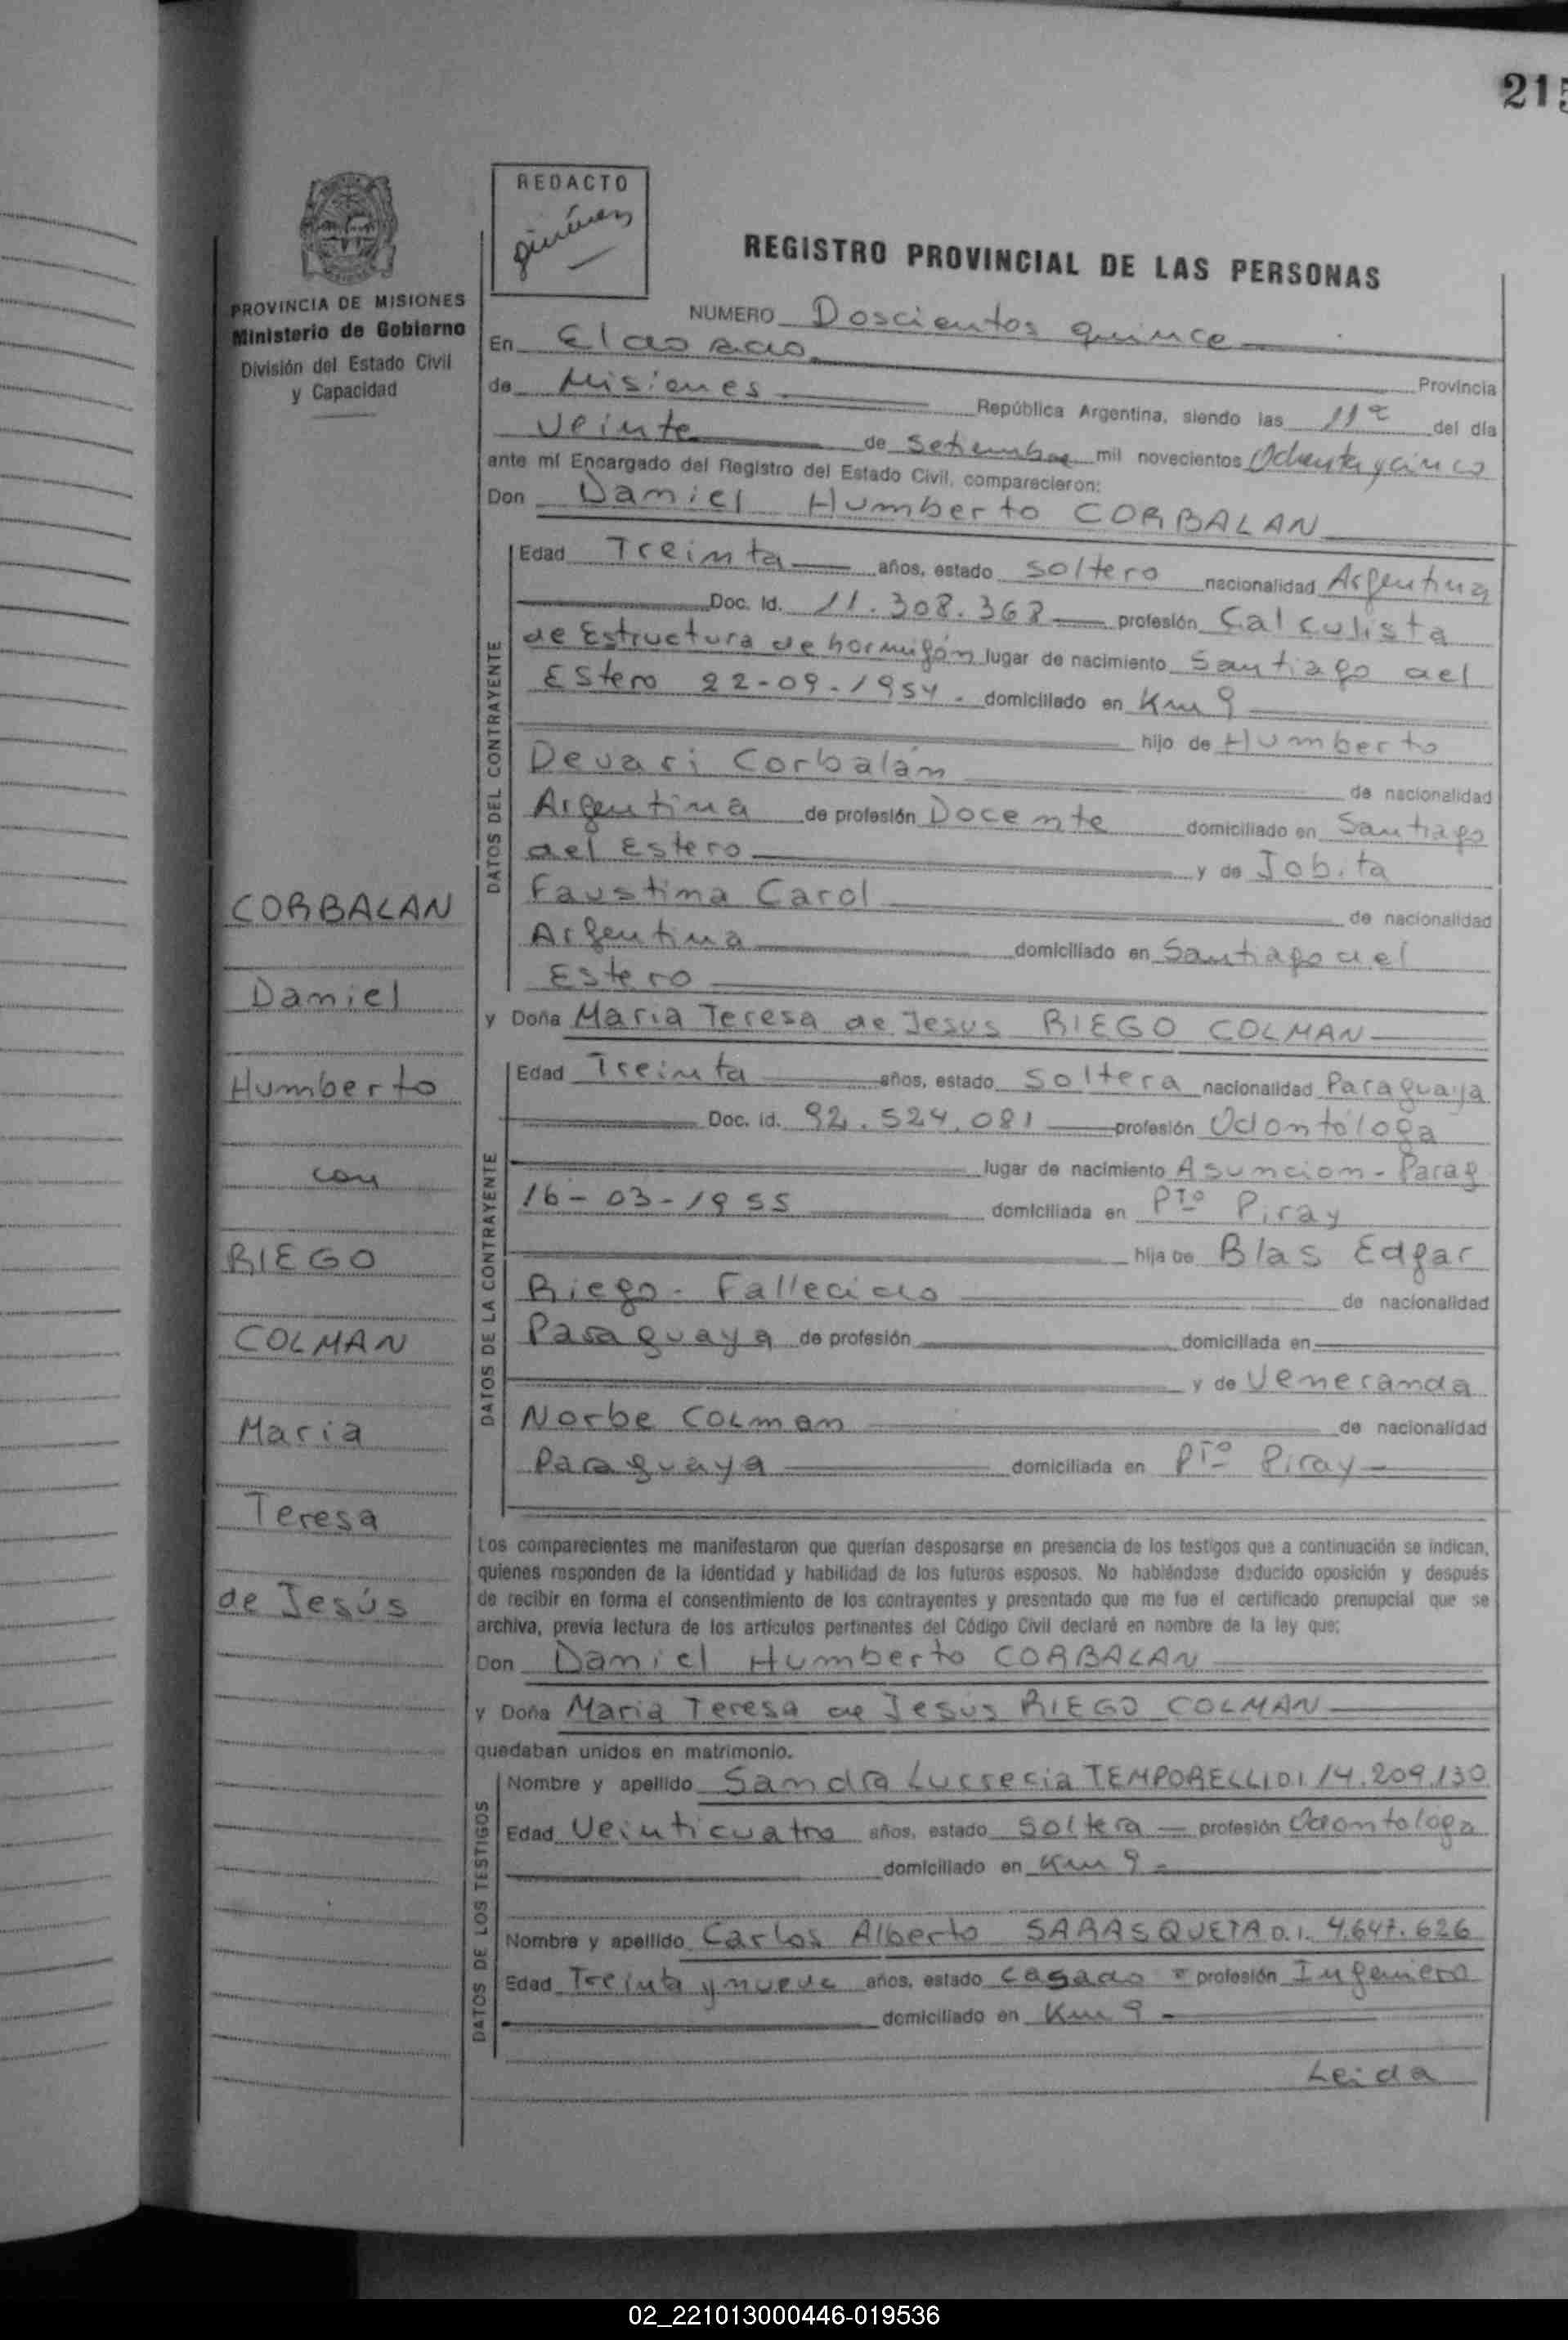 215
REDACTO
Giménez
PROVINCIA DE MISIONES
Ministerio de Gobierno
División del Estado Civil
y Capacidad
REGISTRO PROVINCIAL DE LAS PERSONAS
NUMERO Doscientos quince
En Eldorado Provincia
de Misiones República Argentina, siendo las 11 del día
Veinte de Setiembre mil novecientos Ochenta y cinco
ante mí Encargado del Registro del Estado Civil, comparecieron:
Don Daniel Humberto CORBALAN
DATOS DEL CONTRAYENTE
Edad Treinta años, estado soltero nacionalidad Argentina
Doc. Id. 11.308.368 profesión Calculista
de Estructura de hormigón lugar de nacimiento Santiago del
Estero 22-09-1954. domiciliado en Km 9
hijo de Humberto
Devari Corbalán de nacionalidad
Argentina de profesión Docente domiciliado en Santiago
del Estero y de Jobita
Faustina Carol de nacionalidad
Argentina domiciliado en Santiago del
Estero
y Doña Maria Teresa de Jesus RIEGO COLMAN
DATOS DE LA CONTRAYENTE
Edad Treinta años, estado soltera nacionalidad Paraguaya
Doc. id. 92.524.081 profesión Odontóloga
lugar de nacimiento Asuncion - Parag
16-03-1955 domiciliada en Pto Piray
hija de Blas Edgar
Riego - Fallecido de nacionalidad
Paraguaya de profesión domiciliada en
y de Veneranda
Norbe COLman de nacionalidad
Paraguaya domiciliada en Pto Piray
CORBALAN
Daniel
Humberto
con
RIEGO
COLMAN
Maria
Teresa
de Jesús
Los comparecientes me manifestaron que querían desposarse en presencia de los testigos que a continuación se indican,
quienes responden de la identidad y habilidad de los futuros esposos. No habiéndose deducido oposición y después
de recibir en forma el consentimiento de los contrayentes y presentado que me fue el certificado prenupcial que se
archiva, previa lectura de los artículos pertinentes del Código Civil declaré en nombre de la ley que:
Don Daniel Humberto CORBALAN
y Doña Maria Teresa de Jesús RIEGO COLMAN
quedaban unidos en matrimonio.
DATOS DE LOS TESTIGOS
Nombre y apellido Sandra Lucrecia TEMPORELLI D.I. 14.209.130
Edad Veinticuatro años, estado soltera profesión Odontologa
domiciliado en Km 9
Nombre y apellido Carlos Alberto SARASQUETA D.I. 4.647.626
Edad Treinta y nueve años, estado casado profesión Ingeniero
domiciliado en Km 9
Leida
02_221013000446-019536